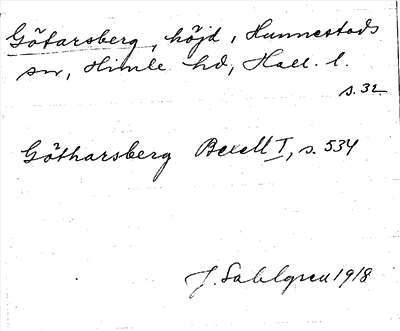 Götarsberg, höjd, Hunnestads
sn, Himle hd, Hall. l.
s. 32
Götharsberg Bexell I, s. 534
J. Sahlgren 1918